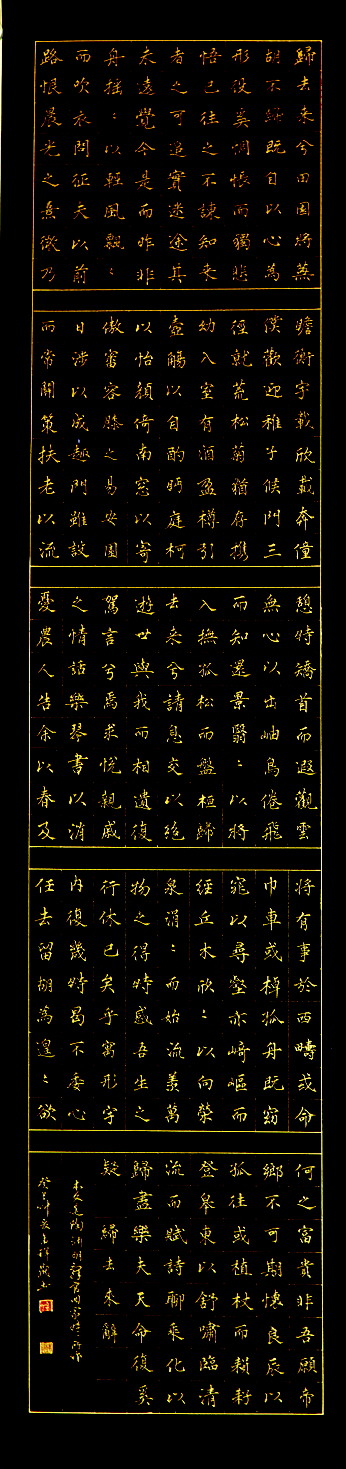 歸去來兮田園將蕪
胡不歸既自以心為
形役奚惆悵而獨悲
悟已往之不諫知來
者之可追實迷途其
未遠覺今是而昨非
舟搖〻以輕風飄〻
而吹衣問征夫以前
路恨晨光之熹微乃
瞻衡宇載欣載奔僮
僕歡迎稚子候門三
徑就荒松菊猶存攜
幼入室有酒盈樽引
壺觴以自酌眄庭柯
以怡顏倚南窓以寄
傲審容膝之易安園
日涉以成趣門雖設
而常關策扶老以流
憩時矯首而遐觀雲
無心以出岫鳥倦飛
而知還景翳〻以將
入撫孤松而盤桓歸
去來兮請息交以絕
遊世與我而相遺復
駕言兮焉求悅親戚
之情話樂琴書以消
憂農人告余以春及
將有事於西疇或命
巾車或棹孤舟既窈
窕以尋壑亦崎嶇而
經丘木欣〻以向榮
泉涓〻而始流羨萬
物之得時感吾生之
行休已矣乎寓形宇
內復幾時曷不委心
任去留胡為遑〻欲
何之富貴非吾願帝
鄉不可期懷良辰以
孤往或植杖而耘耔
登皋東以舒嘯臨清
流而賦詩聊乘化以
歸盡樂夫天命復奚
疑 歸去來辭
本文是陶淵明辭官回家時所作